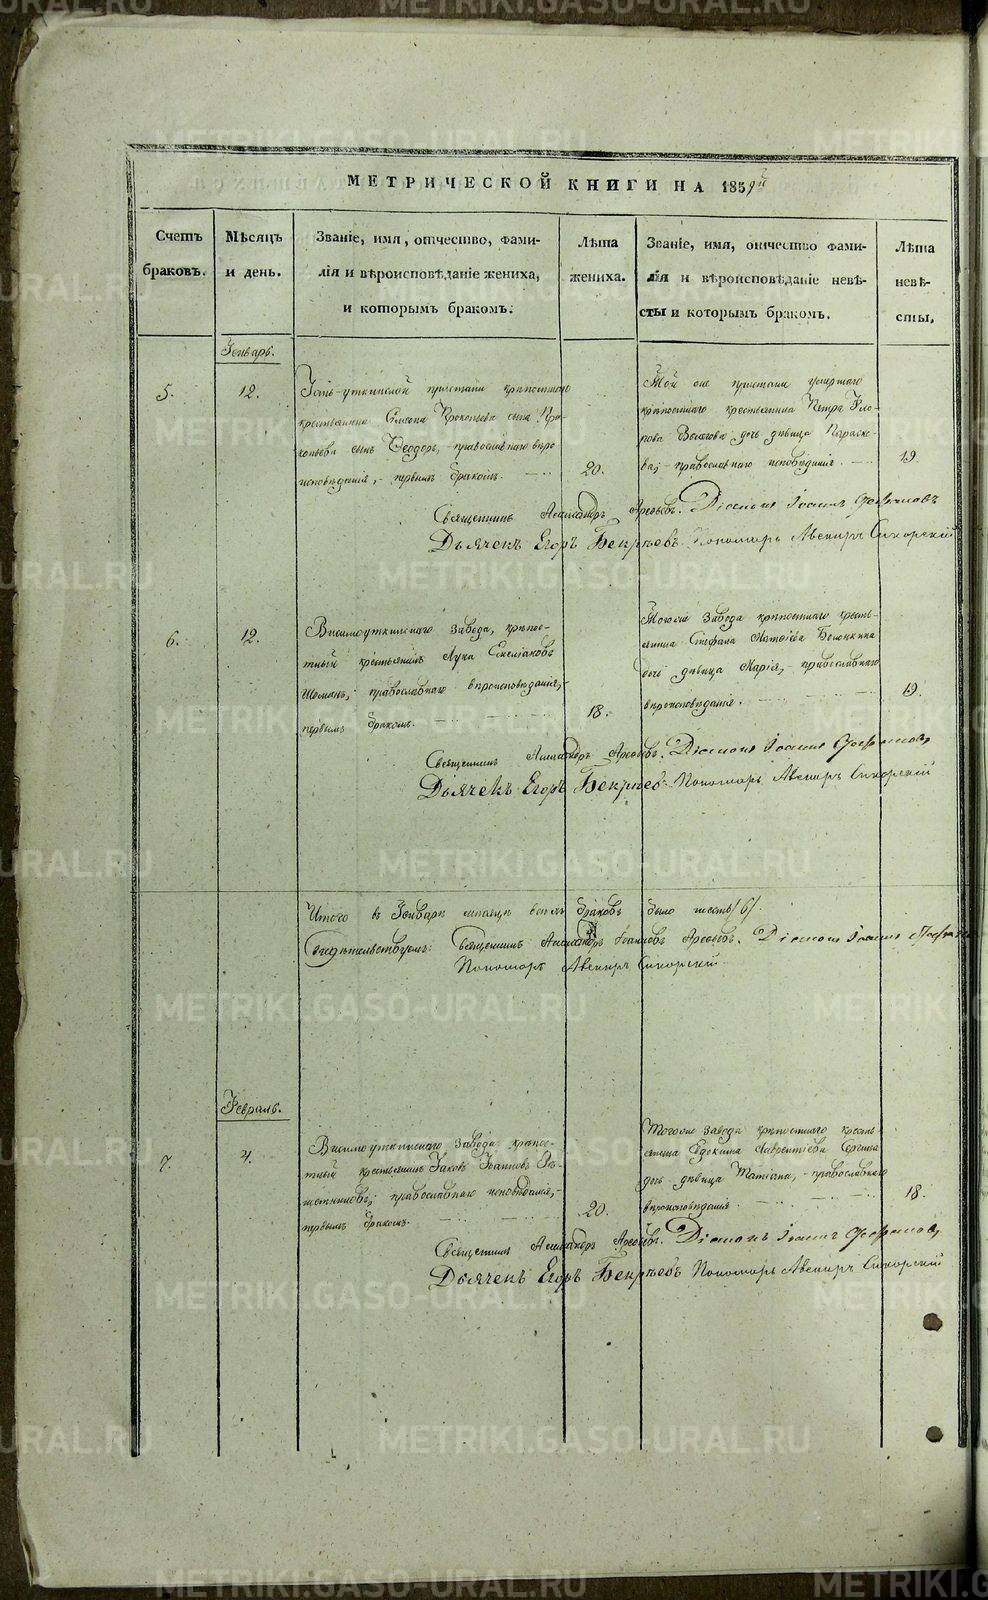 МЕТРИЧЕСКОЙ КНИГИ НА 1859й
Счетъ
браковъ.
Мѣсяцъ
и день.
Званіе, имя, отчество, фами-
лія и вѣроисповѣданіе жениха,
и которымъ бракомъ.
Лѣта
жениха.
Званіе, имя, отчество фами-
лія и вѣроисповѣданіе невѣ-
сты и которымъ бракомъ.
Лѣта
невѣ-
сты,
Генварь.
5.
12.
Усть-уткинской пристани крѣпостнаго
крестьянина Прокопьева сына Про-
копьева сынъ Ѳеодоръ, православнаго вѣро
исповѣданія, первымъ бракомъ.
20.
Той же пристани умершаго
крѣпостнаго крестьянина Петра
дочь дѣвица Параске-
ва, православнаго исповѣданія.
19.
Священникъ Александръ Арефьевъ. Діаконъ Іоаннъ
Дьячекъ Егоръ Бекрѣевъ. Пономарь Авениръ Сикорскій
6.
12.
Висимоуткинскаго завода, крѣпос-
тный крестьянинъ Лука Емельяновъ
православнаго вѣроисповѣданія,
первымъ бракомъ.
18.
Тогоже завода крѣпостнаго кресть-
янина Стефана Матѳіева
дочь дѣвица Марія, православнаго
вѣроисповѣданія.
19.
Священникъ Александръ Арефьевъ. Діаконъ Іоаннъ
Дьячекъ Егоръ Бекрѣевъ Пономарь Авениръ Сикорскій
Итого въ Генварѣ мѣсяцѣ всѣхъ браковъ было шесть /6/.
Свидѣтельствуемъ: Священникъ Александръ Іоанновъ Арефьевъ. Діаконъ Іоаннъ
Пономарь Авениръ Сикорскій
Февраль.
7.
4.
Висимоуткинскаго завода крѣпос-
тный крестьянинъ Іаковъ Іоанновъ Рѣ-
шетниковъ, православнаго исповѣданія,
первымъ бракомъ.
20.
Тогоже завода крѣпостнаго кресть-
янина Евдокима Лаврентіева
дочь дѣвица Татіана, православнаго
вѣроисповѣданія
18.
Священникъ Александръ Арефьевъ. Діаконъ Іоаннъ
Дьячекъ Егоръ Бекрѣевъ Пономарь Авениръ Сикорскій
METRIKI.GASO-URAL.RU